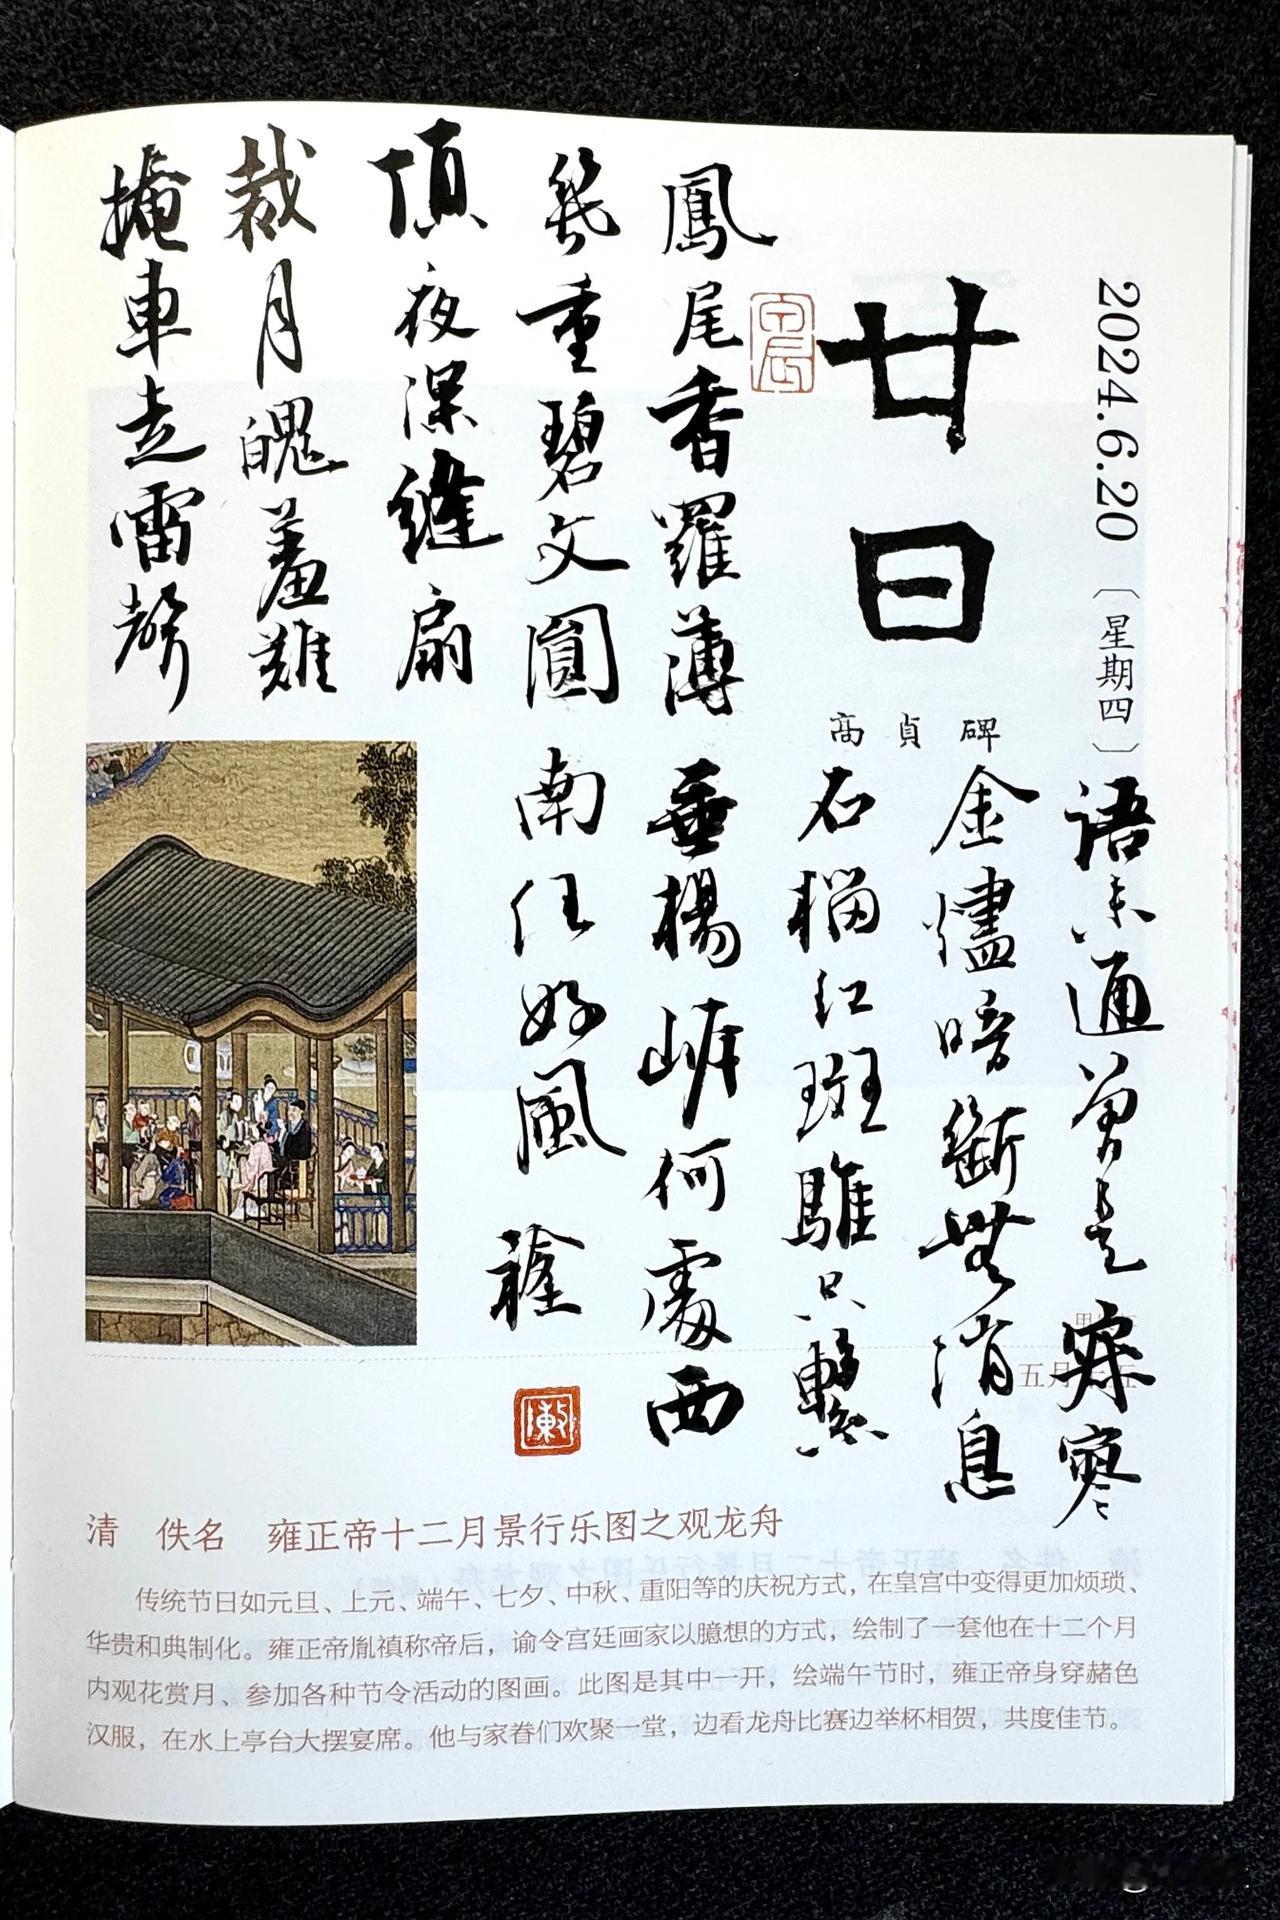 2024.6.20〔星期四〕
廿日
高貞碑
鳳尾香羅薄
幾重碧文圓
頂夜深縫扇
裁月魄羞難
掩車走雷聲
語未通曾是寂寥
金燼暗斷無消息
石榴紅斑騅只繫
垂楊岸何處西
南任好風
清 佚名 雍正帝十二月景行乐图之观龙舟
传统节日如元旦、上元、端午、七夕、中秋、重阳等的庆祝方式，在皇宫中变得更加烦琐、
华贵和典制化。雍正帝胤禛称帝后，谕令宫廷画家以臆想的方式，绘制了一套他在十二个月
内观花赏月、参加各种节令活动的图画。此图是其中一开，绘端午节时，雍正帝身穿赭色
汉服，在水上亭台大摆宴席。他与家眷们欢聚一堂，边看龙舟比赛边举杯相贺，共度佳节。